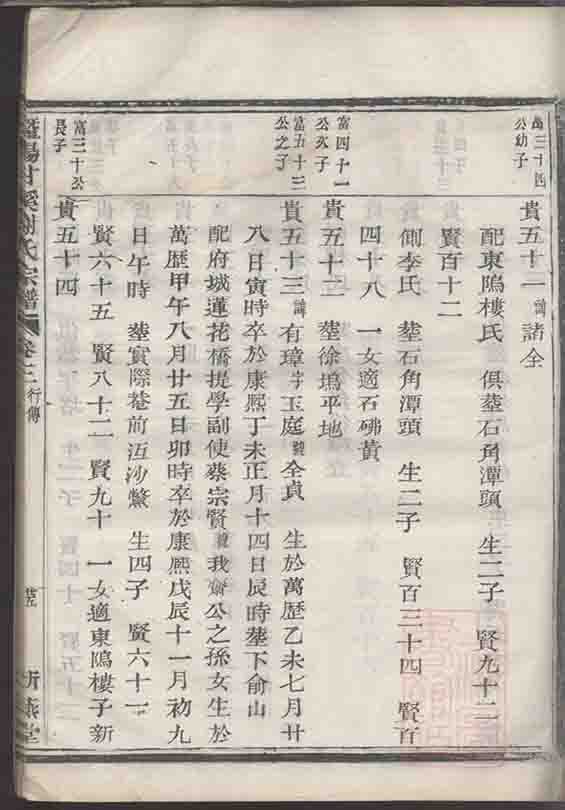 富三十四
公幼子
貴五十一 諱諸全
配東隖樓氏 俱塟石角潭頭 生二子 賢九十二
賢百十二
側李氏 塟石角潭頭 生二子 賢百三十四 賢百
四十八 一女適石硃黃
富四十一
公次子
貴五十二 塟徐塢平地
富五十三
公之子
貴五十三 諱有璋字玉庭號全貞 生於萬歷乙未七月廿
八日寅時卒於康熙丁未正月十四日辰時塟下俞山
配府城蓮花橋提學副使蔡宗賢號我齋公之孫女生於
萬歷甲午八月廿五日卯時卒於康熙戊辰十一月初九
日午時 塟實際菴前沍沙㡀 生四子 賢六十一
賢六十五 賢八十二 賢九十 一女適東隖樓子新
富三十公
長子
貴五十四
暨陽甘溪謝氏宗譜 卷三 行傳